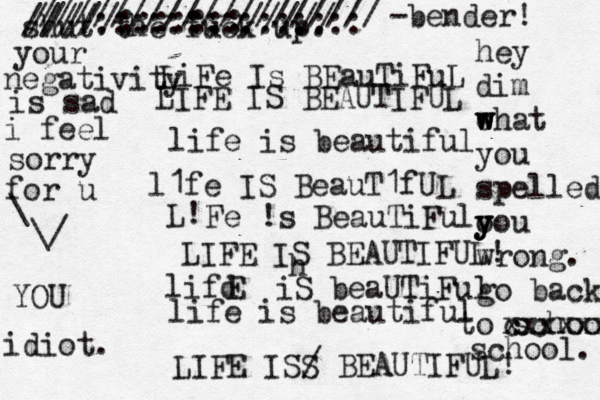 shut the fuck up...
-bender!
your
negativity
is sad
i feel
sorry
for u
YOU
idiot.
LiFe Is BEauTiFuL
LIFE IS BEAUTIFUL
life is beautiful
l1fe IS BeauT1fUL
L!Fe !s BeauTiFul
LIFE IS BEAUTIFUL!
lifE iS beaUTiFul
life is beautiful
LIFE ISS BEAUTIFUL!
hey
dim
what
you
spelled
you
wrong.
go back
to
school.